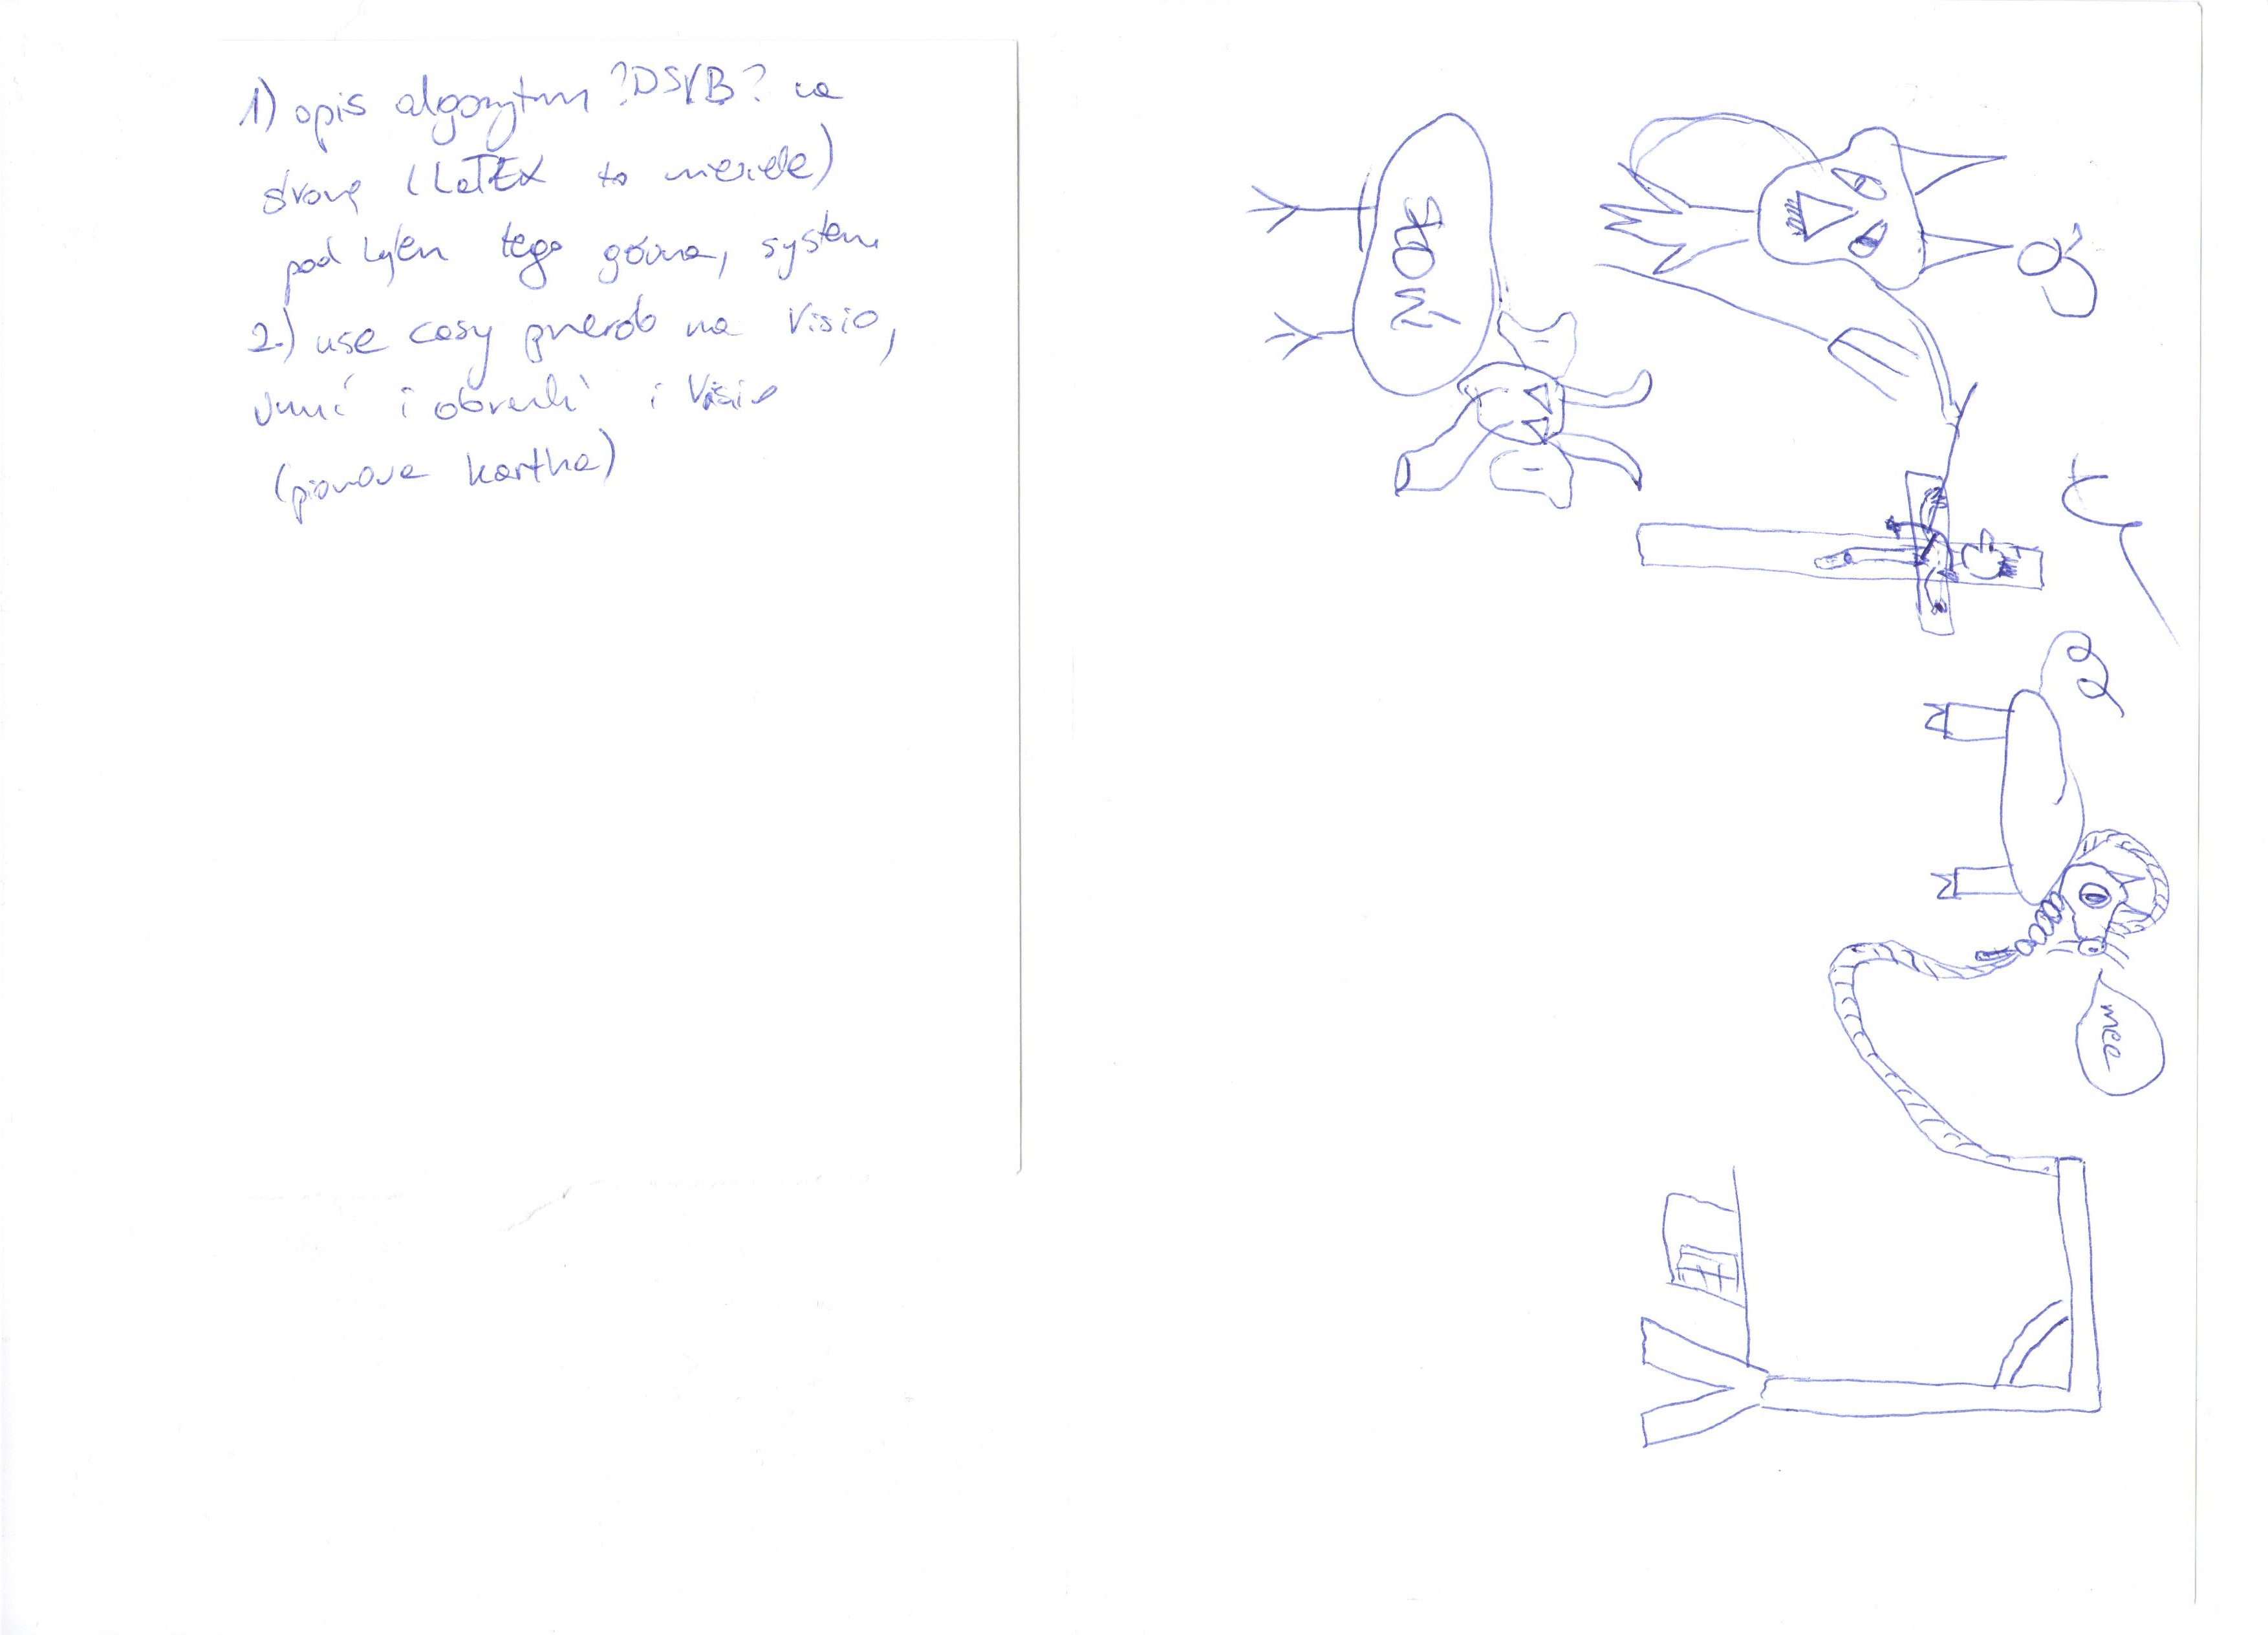 1) opis algorytm ?DSVB? na
stronę (LaTEX to niewiele)
pod kątem tego gówna, system
2.) use casy przerób na Visio,
i obrazki i Visio
(pionowa kartka)
mee